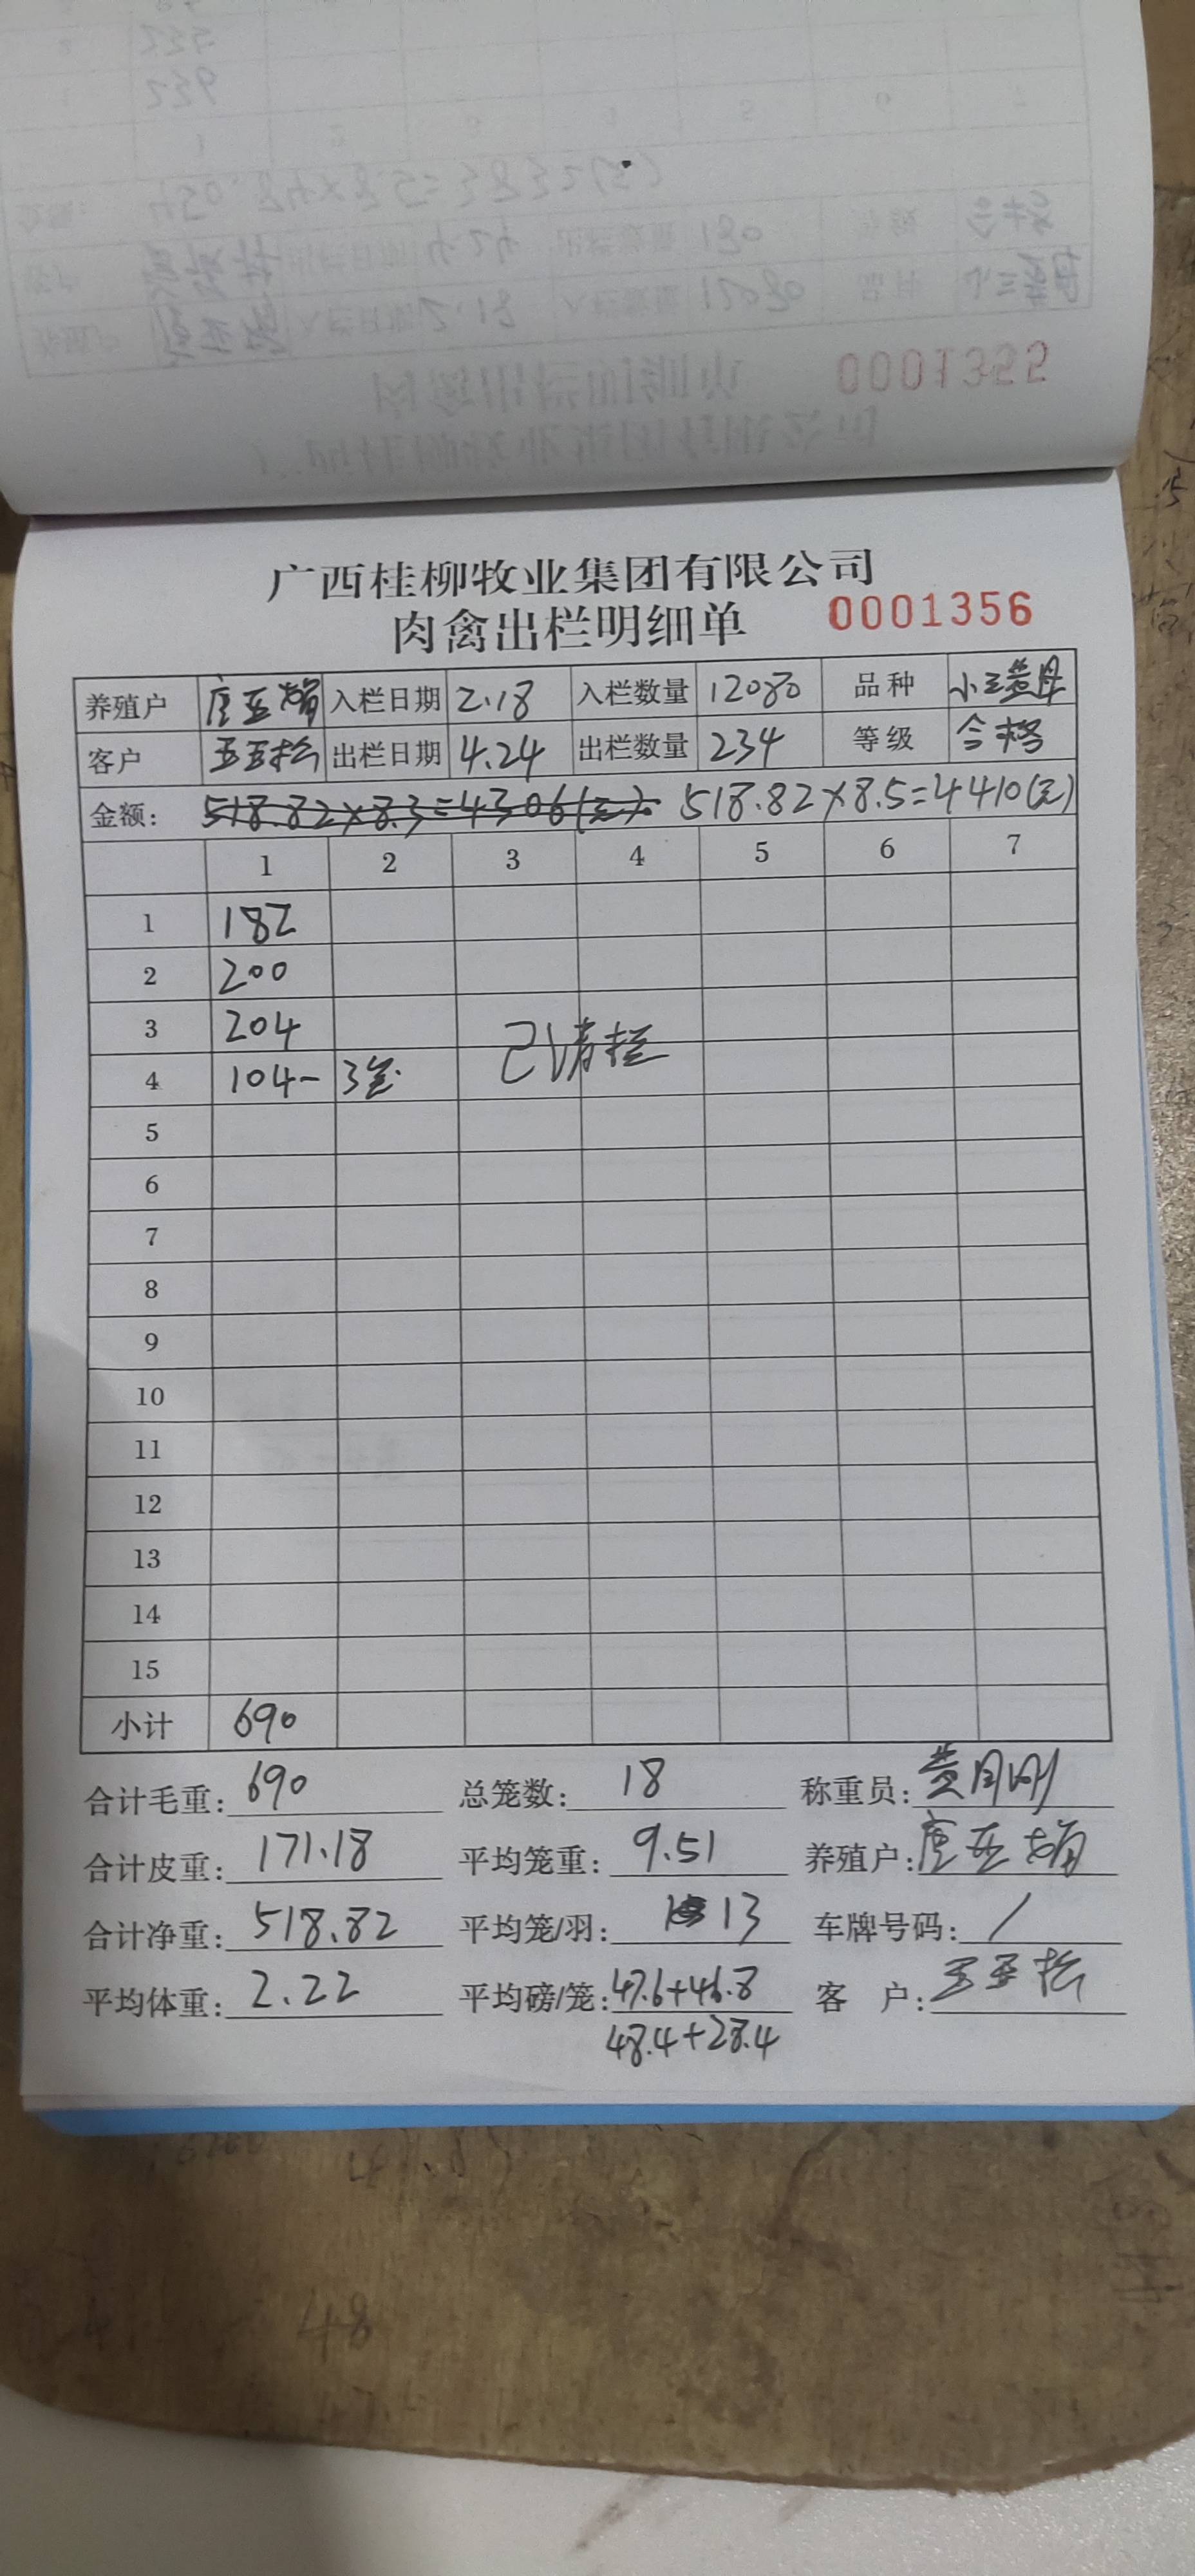 0001355
广西桂柳牧业集团有限公司
肉禽出栏明细单 0001356
养殖户 唐亚娟 入栏日期 2.18 入栏数量 12080 品种 小三黄母
客户 王王松 出栏日期 4.24 出栏数量 234 等级 合格
金额: 518.82×8.3=4306(元). 518.82×8.5=4410(元)
1 2 3 4 5 6 7
1 182
2 200
3 204
已清栏
4 104- 3笼
5
6
7
8
9
10
11
12
13
14
15
小计 690
合计毛重: 690 总笼数: 18 称重员: 黄月刚
合计皮重: 171.18 平均笼重: 9.51 养殖户: 唐亚娟
合计净重: 518.82 平均笼/羽: 13 车牌号码: /
平均体重: 2.22 平均磅/笼: 47.6+46.8 客 户: 王王松
48.4+28.4